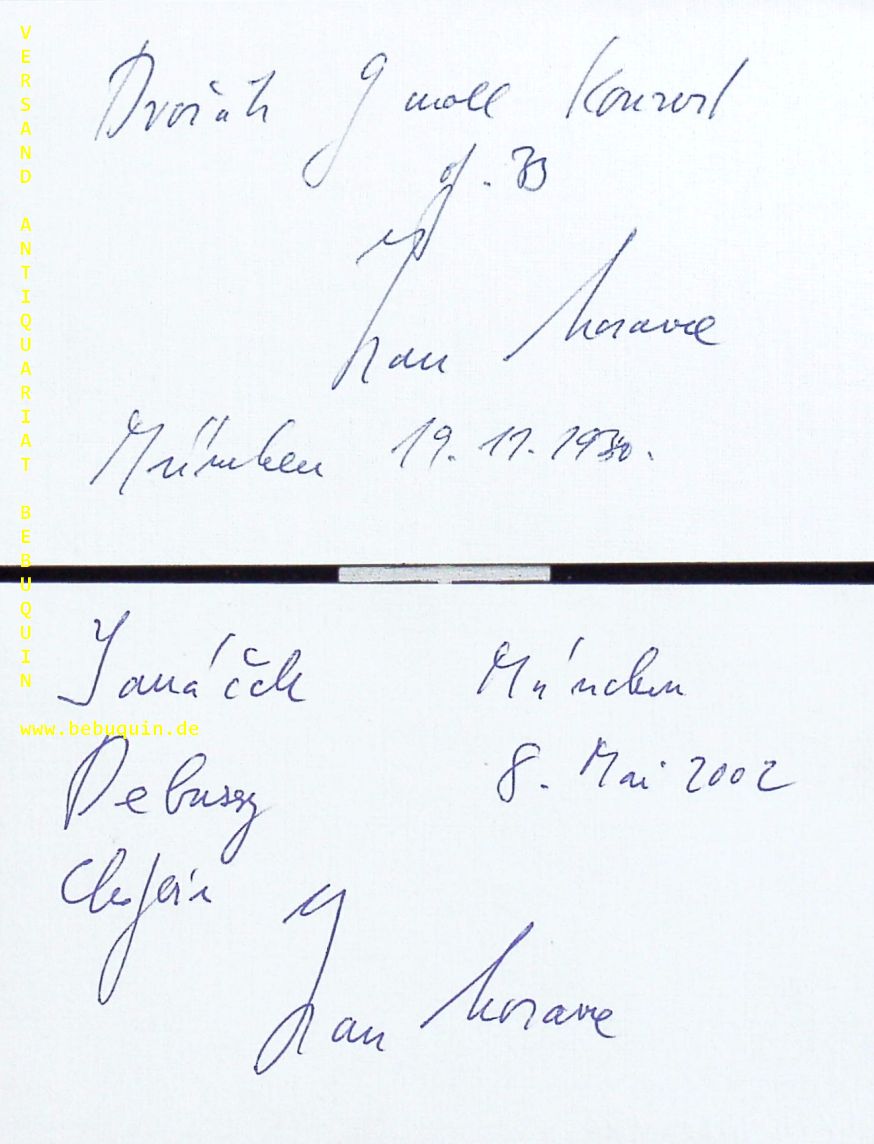 VERSAND ANTIQUARIAT BEBUQUIN
www.bebuquin.de
Dvořák g moll Konzert
op. 33
Ivan Moravec
München 19. 11. 1990.
Janáček
Debussy
Chopin
München
8. Mai 2002
Ivan Moravec